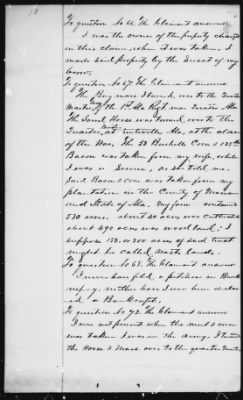 To question No 66. The Claimant answers
I was the owner of the property charged
in this claim, when it was taken, I
made said property by the sweat of my
brow.
To question No 67. The Claimant answers
The Gray mare I turned over to the Quarter
Master of the 1st Ala Regt, near Decatur Ala
The Sorrel Horse was turned over to the
Quarter Master at Huntsville Ala, at the close
of the War, The 50 Bushels Corn & 125 lbs
Bacon was taken from my wife while
I was in Service, as she told me,
Said Bacon & Corn was taken from my
plantation in the County of
and State of Ala. My farm contained
530 acres. about 40 acres was cultivated
about 490 acres was wood land; I
suppose 150 or 200 acres of said tract
might be called waste land.
To question No 68. The Claimant answers
I never have filed a petition in Bank
ruptcy, neither have I ever been declar
ed a Bankrupt.
To question No 72. The Claimant answers
I was not present when the meat & corn
was taken I was in the Army. I turned
the Horse & Mare over to the quarter Master